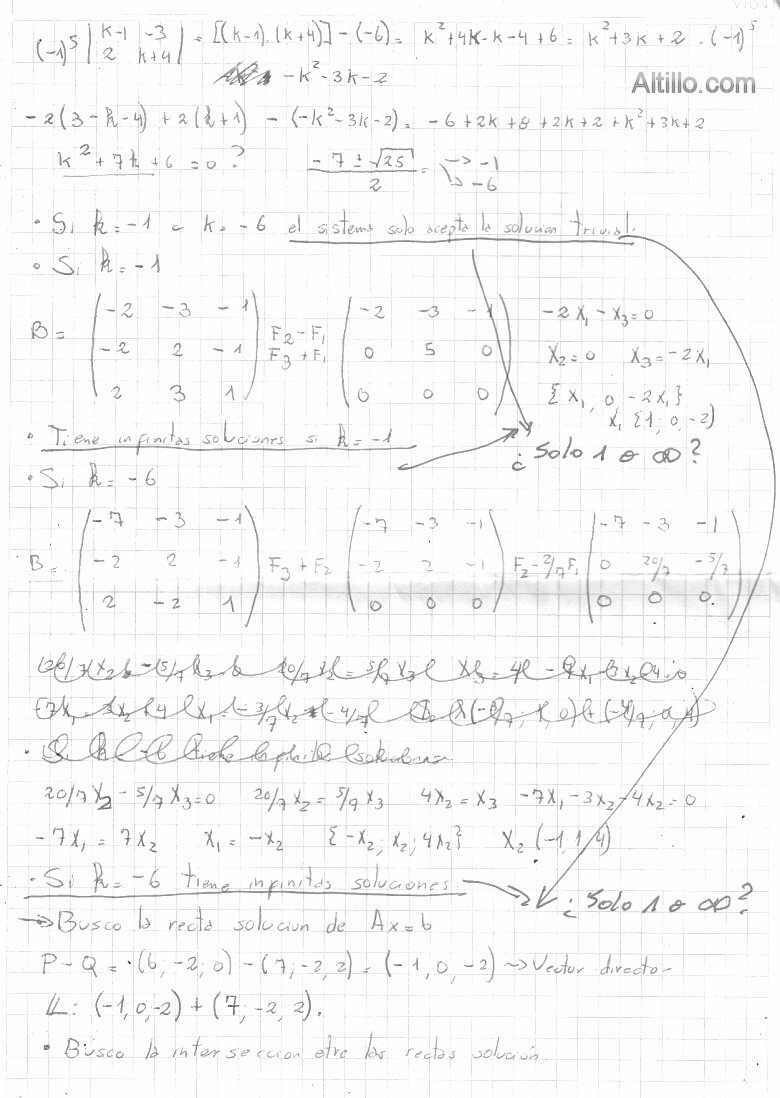 (-1)^5 | k-1 -3 | = [(k-1).(k+4)] - (-6) = k²+4k-k-4+6 = k²+3k+2 . (-1)^5
| 2 k+4 |
-k²-3k-2
Altillo.com
-2(3-k-4) + 2(k+1) - (-k²-3k-2) = -6+2k+8+2k+2+k²+3k+2
k²+7k+6 = 0 ? -7 ± √25 / 2 = → -1
↳ -6
• Si k=-1 o k=-6 el sistema solo acepta la solucion trivial.
• Si k=-1
B = ( -2 -3 -1 ) F2-F1 ( -2 -3 -1 ) -2x1 - x3 = 0
( -2 2 -1 ) F3+F1 ( 0 5 0 ) x2=0 x3=-2x1
( 2 3 1 ) ( 0 0 0 ) {x1, 0, -2x1}
x1 (1, 0, -2)
• Tiene infinitas soluciones si k=-1
¿Solo 1 o ∞?
• Si k=-6
B = ( -7 -3 -1 ) F3+F2 ( -7 -3 -1 ) F2-2/7F1 ( -7 -3 -1 )
( -2 2 -1 ) ( -2 2 -1 ) ( 0 20/7 -5/7 )
( 2 -2 1 ) ( 0 0 0 ) ( 0 0 0 )
20/7x2 - 5/7x3=0 20/7x2 = 5/7x3 4x2=x3 -7x1-3x2-4x2=0
-7x1 = 7x2 x1=-x2 {-x2; x2; 4x2} x2 (-1,1,4)
• Si k=-6 tiene infinitas soluciones
¿Solo 1 o ∞?
→ Busco la recta solucion de Ax=b
P-Q = (6,-2,0) - (7,-2,2) = (-1,0,-2) → Vector director
L: (-1,0,-2) + (7,-2,2).
• Busco la interseccion etre las rectas solución.